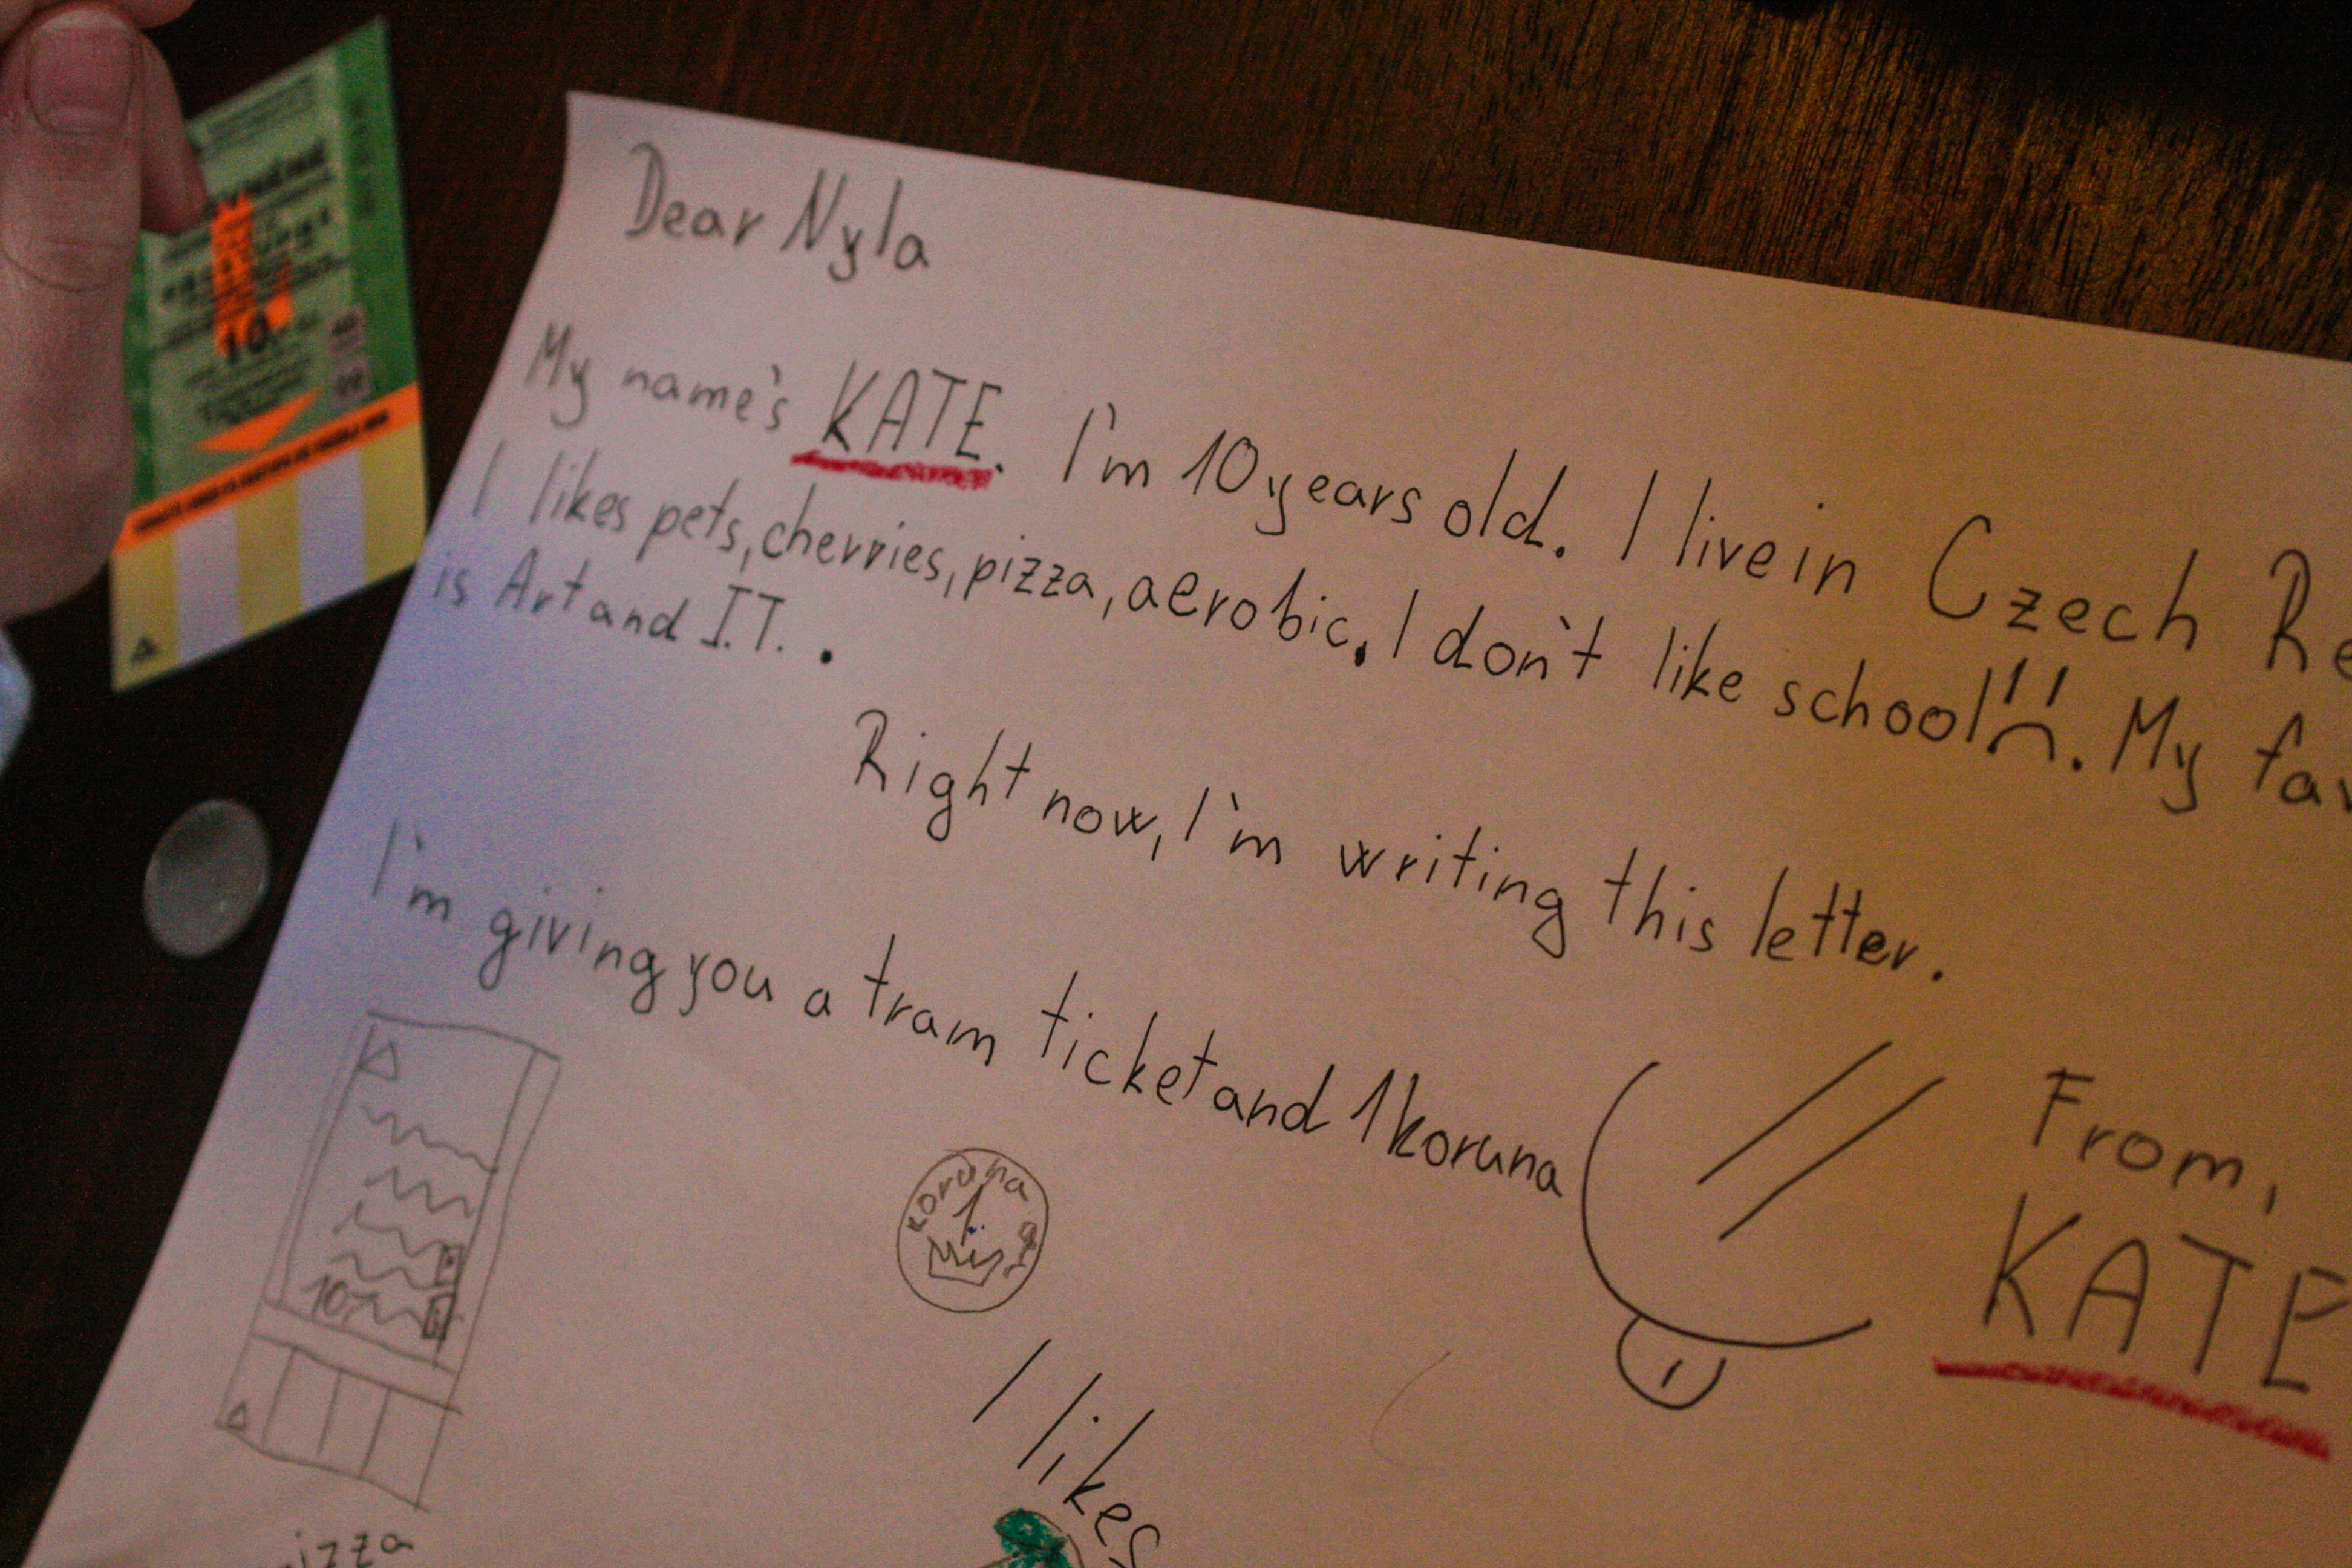 Dear Nyla
My name's KATE. I'm 10 years old. I live in Czech Re
I likes pets, cherries, pizza, aerobic. I don't like school. My fav
is Art and I.T. .
Right now, I'm writing this letter.
I'm giving you a tram ticket and 1 koruna
From,
KATE
koruna
1
10
I likes
pizza
10